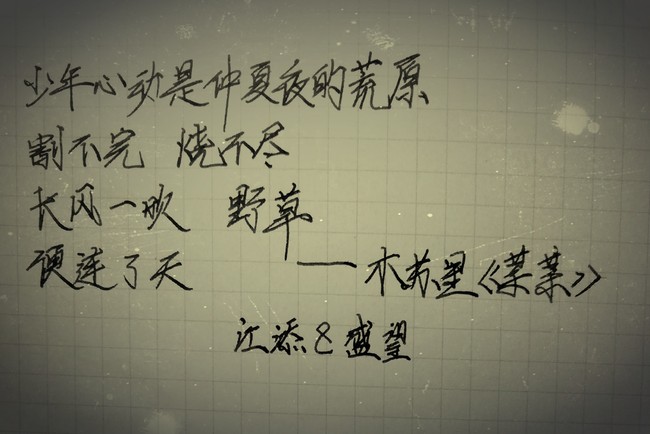 少年心动是仲夏夜的荒原
割不完 烧不尽
长风一吹 野草
便连了天 ——木苏里《某某》
江添&盛望